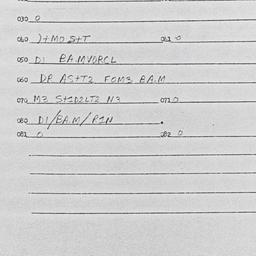 030 0
040 )+MO S+T 041 0
050 DI BA.MVORCL
060 DR AS+T2 FOM3 BA.M
070 M3 S+1D2LT2 N3 071 0
080 DI/BA.M/RIN
081 0 082 0